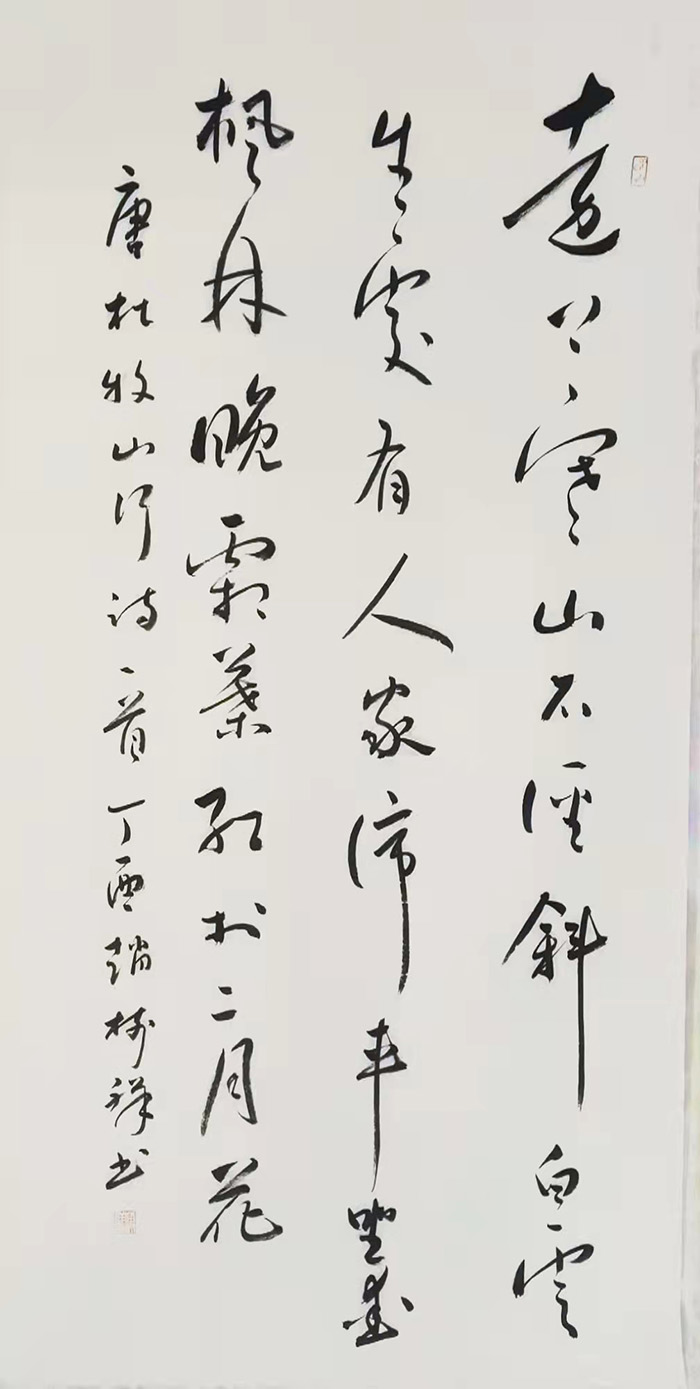 远上寒山石径斜白云
生处有人家停车坐爱
枫林晚霜叶红于二月花
唐杜牧山行诗一首丁酉赵树祥书